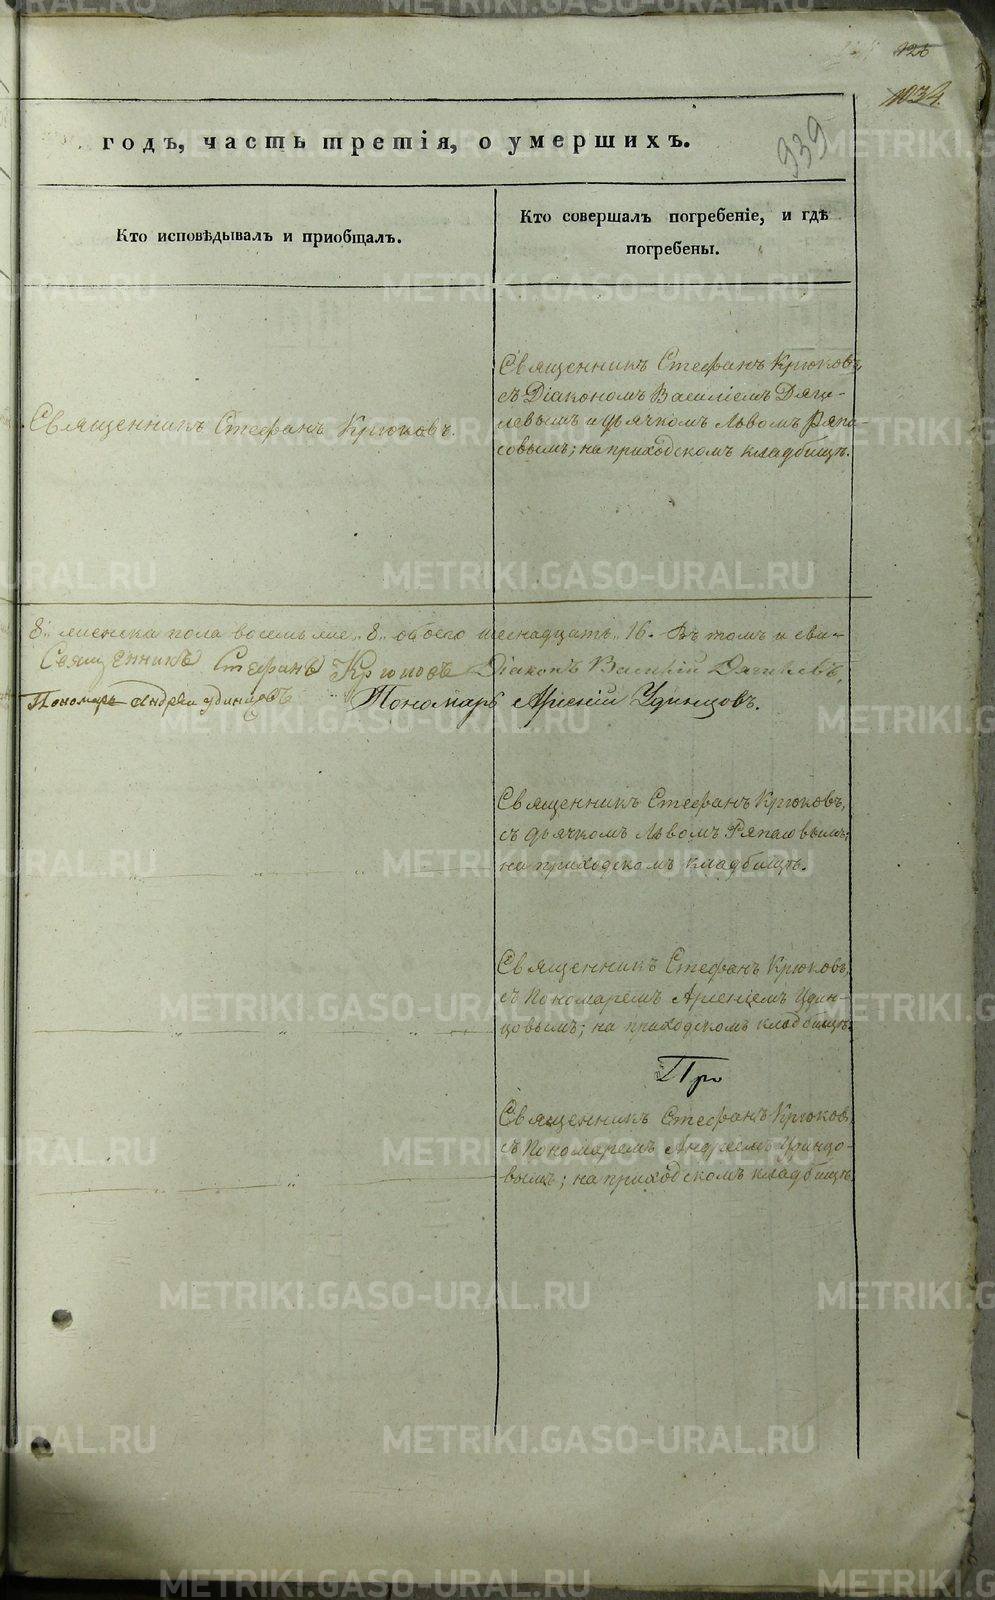 126
1034.
939
годъ, часть третія, о умершихъ.
Кто исповѣдывалъ и пріобщалъ.
Кто совершалъ погребеніе, и гдѣ
погребены.
Священникъ Стефанъ Крюковъ.
Священникъ Стефанъ Крюковъ,
съ Діакономъ Василіемъ Дяги-
левымъ и дьячкомъ Львомъ Ряпа-
совымъ; на приходскомъ кладбищѣ.
8., женска пола восемь 8., обоего шеснадцать. 16. Въ томъ и сви-
Священникъ Стефанъ Крюковъ Діаконъ Василій Дягилевъ,
Пономарь Андрей Удинцовъ Пономарь Арсеній Удинцовъ.
Священникъ Стефанъ Крюковъ,
съ дьячкомъ Львомъ Ряпасовымъ;
на приходскомъ кладбищѣ.
Священникъ Стефанъ Крюковъ,
съ Пономаремъ Арсеніемъ Удин-
цовымъ; на приходскомъ кладбищѣ.
При
Священникъ Стефанъ Крюковъ,
съ Пономаремъ Андреемъ Удинцо-
вымъ; на приходскомъ кладбищѣ.
METRIKI.GASO-URAL.RU